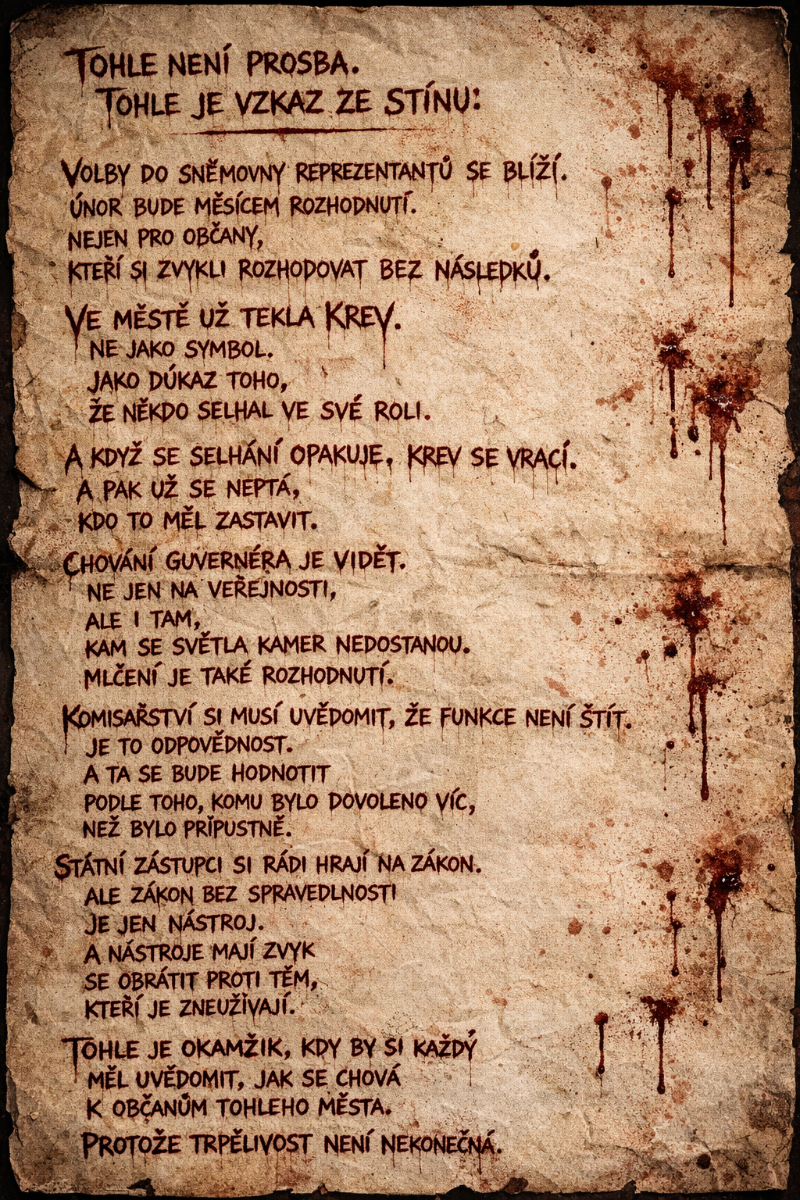 TOHLE NENÍ PROSBA.
TOHLE JE VZKAZ ZE STÍNU:
VOLBY DO SNĚMOVNY REPREZENTANTŮ SE BLÍŽÍ.
ÚNOR BUDE MĚSÍCEM ROZHODNUTÍ.
NEJEN PRO OBČANY,
KTEŘÍ SI ZVYKLI ROZHODOVAT BEZ NÁSLEDKŮ.
VE MĚSTĚ UŽ TEKLA KREV.
NE JAKO SYMBOL.
JAKO DŮKAZ TOHO,
ŽE NĚKDO SELHAL VE SVÉ ROLI.
A KDYŽ SE SELHÁNÍ OPAKUJE, KREV SE VRACÍ.
A PAK UŽ SE NEPTÁ,
KDO TO MĚL ZASTAVIT.
CHOVÁNÍ GUVERNÉRA JE VIDĚT.
NE JEN NA VEŘEJNOSTI,
ALE I TAM,
KAM SE SVĚTLA KAMER NEDOSTANOU.
MLČENÍ JE TAKÉ ROZHODNUTÍ.
KOMISAŘSTVÍ SI MUSÍ UVĚDOMIT, ŽE FUNKCE NENÍ ŠTÍT.
JE TO ODPOVĚDNOST.
A TA SE BUDE HODNOTIT
PODLE TOHO, KOMU BYLO DOVOLENO VÍC,
NEŽ BYLO PŘÍPUSTNĚ.
STÁTNÍ ZÁSTUPCI SI RÁDI HRAJÍ NA ZÁKON.
ALE ZÁKON BEZ SPRAVEDLNOSTI
JE JEN NÁSTROJ.
A NÁSTROJE MAJÍ ZVYK
SE OBRÁTIT PROTI TĚM,
KTEŘÍ JE ZNEUŽÍVAJÍ.
TOHLE JE OKAMŽIK, KDY BY SI KAŽDÝ
MĚL UVĚDOMIT, JAK SE CHOVÁ
K OBČANŮM TOHLEHO MĚSTA.
PROTOŽE TRPĚLIVOST NENÍ NEKONEČNÁ.